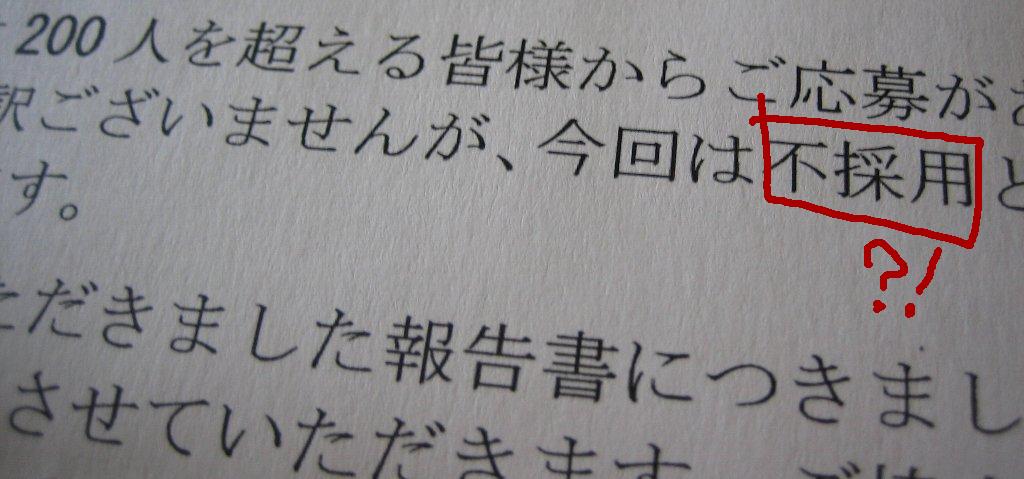 200人を超える皆様からご応募が
訳ございませんが、今回は不採用と
す。
?!
ただきました報告書につきまし
させていただきます。